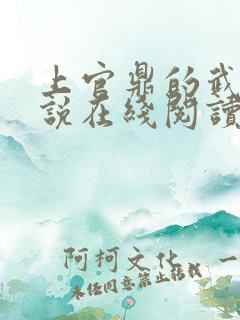 上官鼎的武
説在綫閱讀
阿柯文化 一
未经同意禁止转载